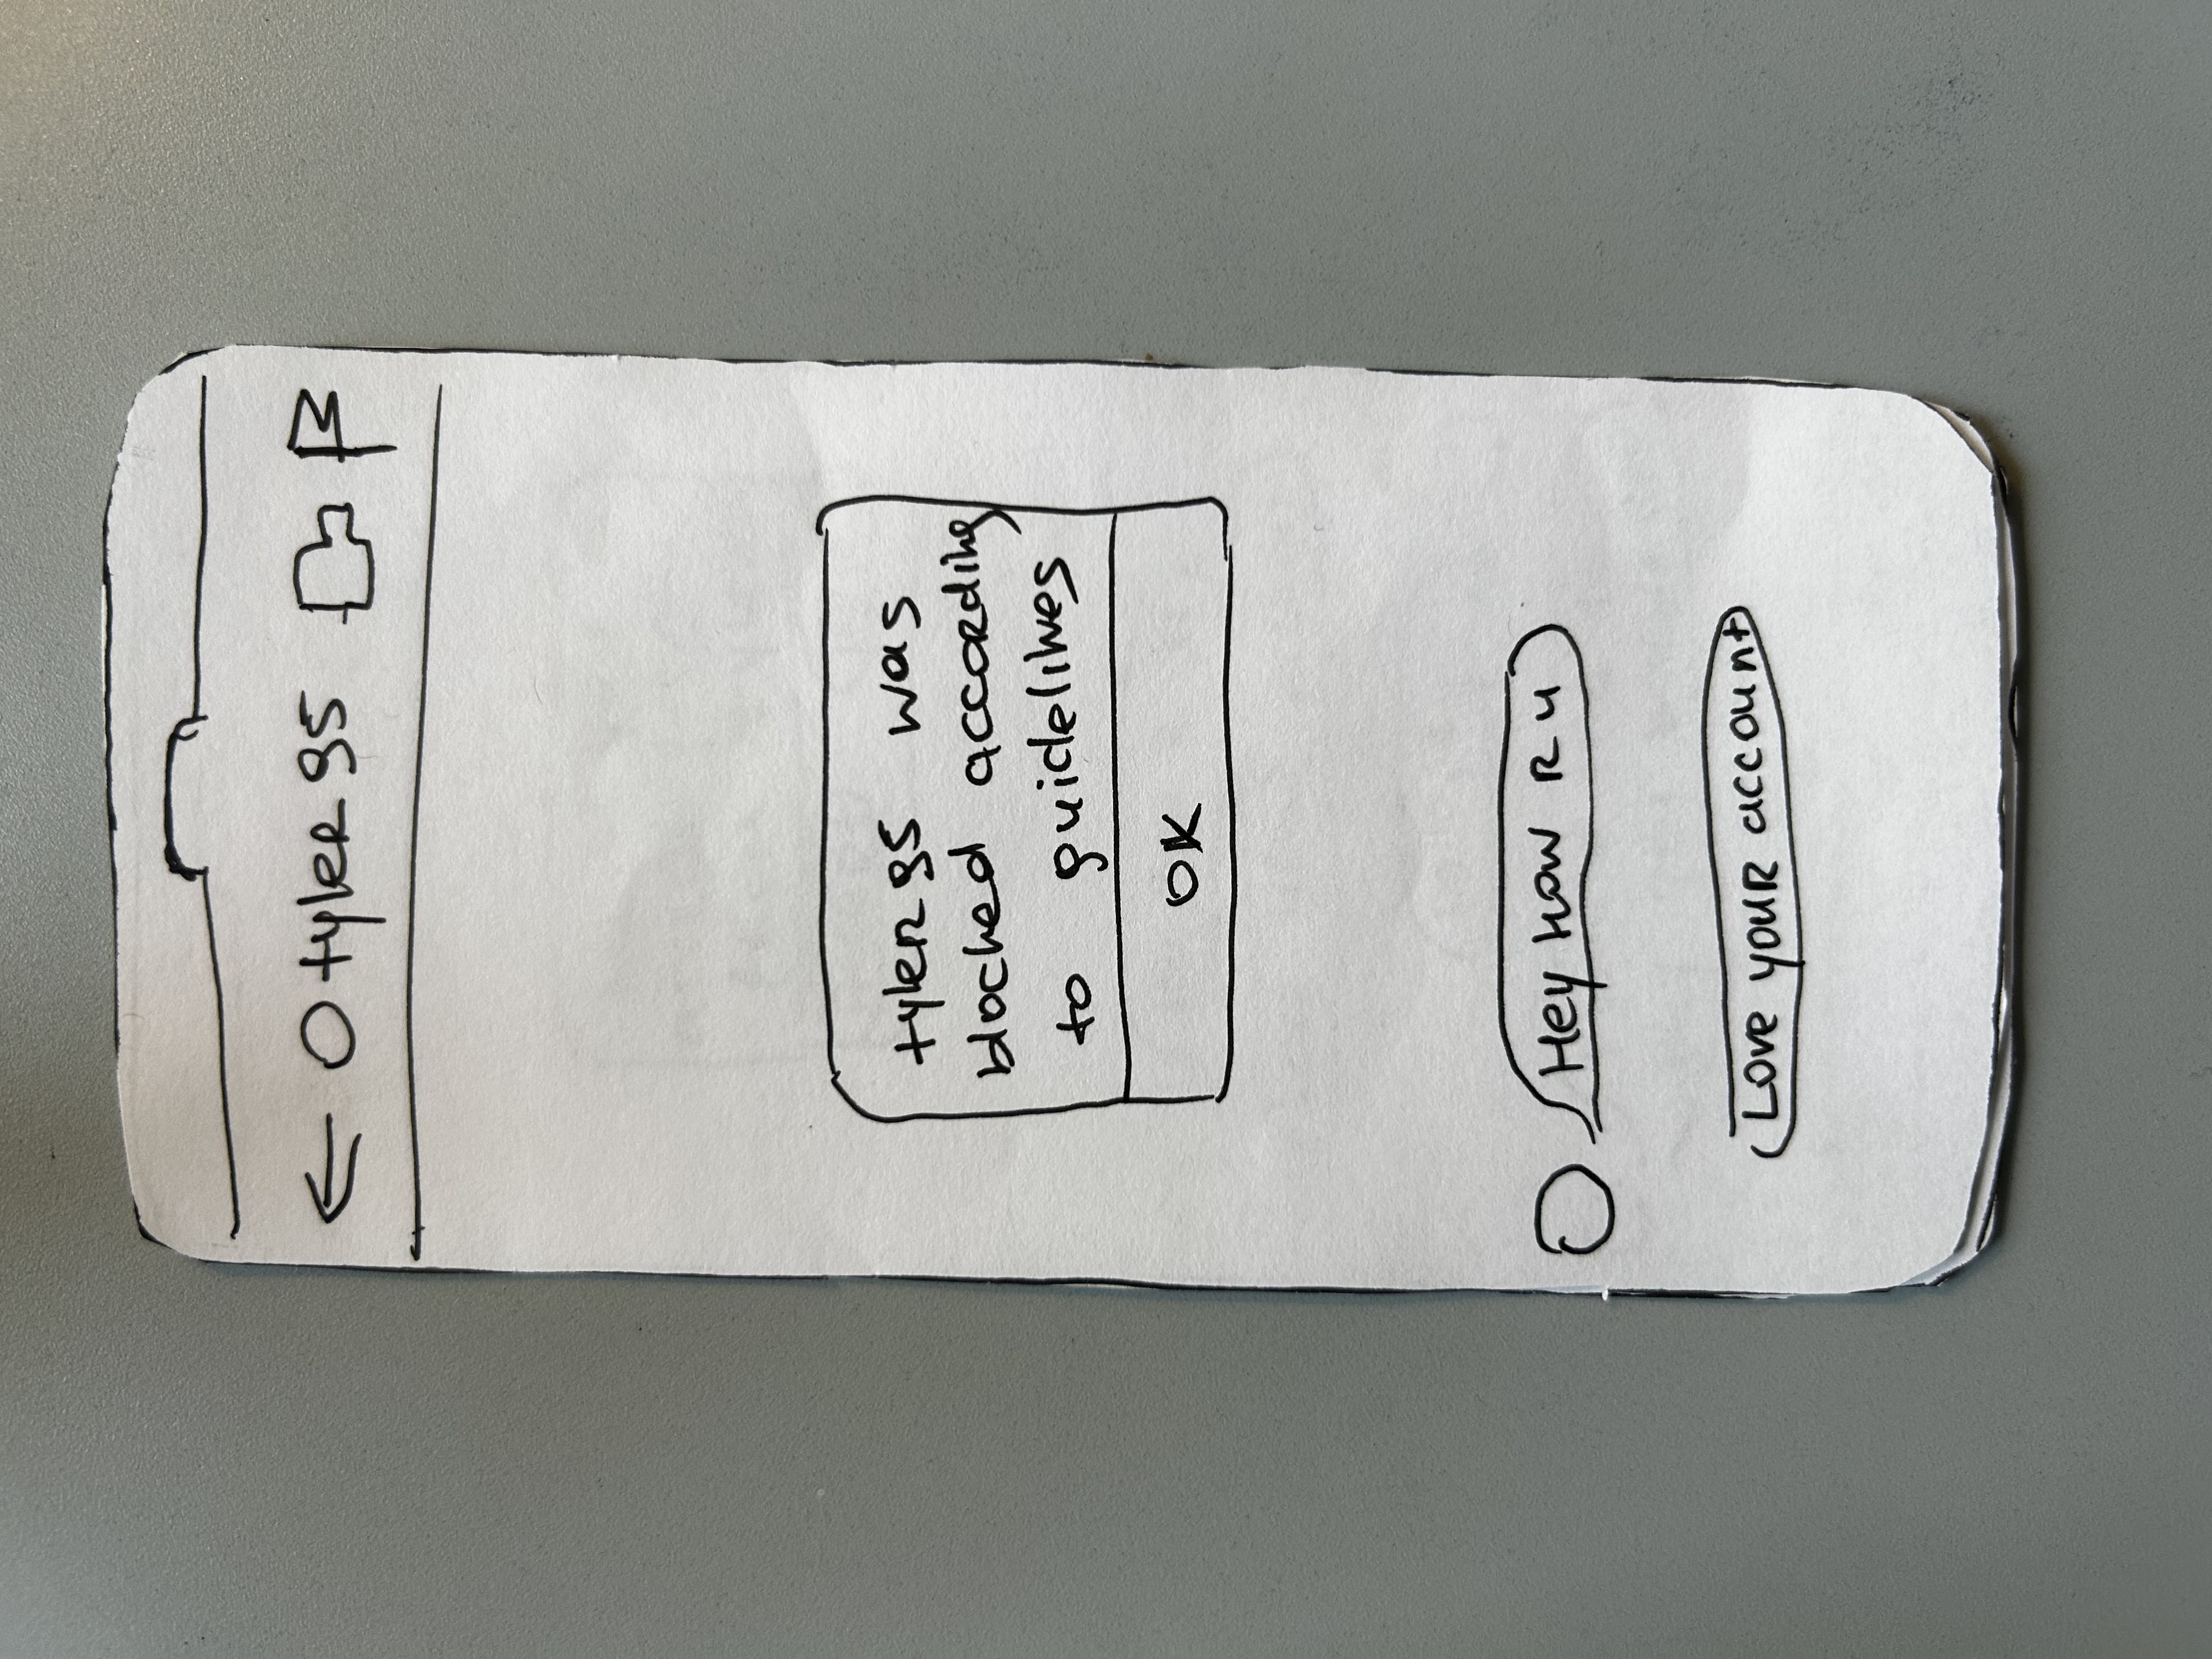 tyler95
tyler95 was
blocked according
to guidelines
OK
Hey How R u
Love your account